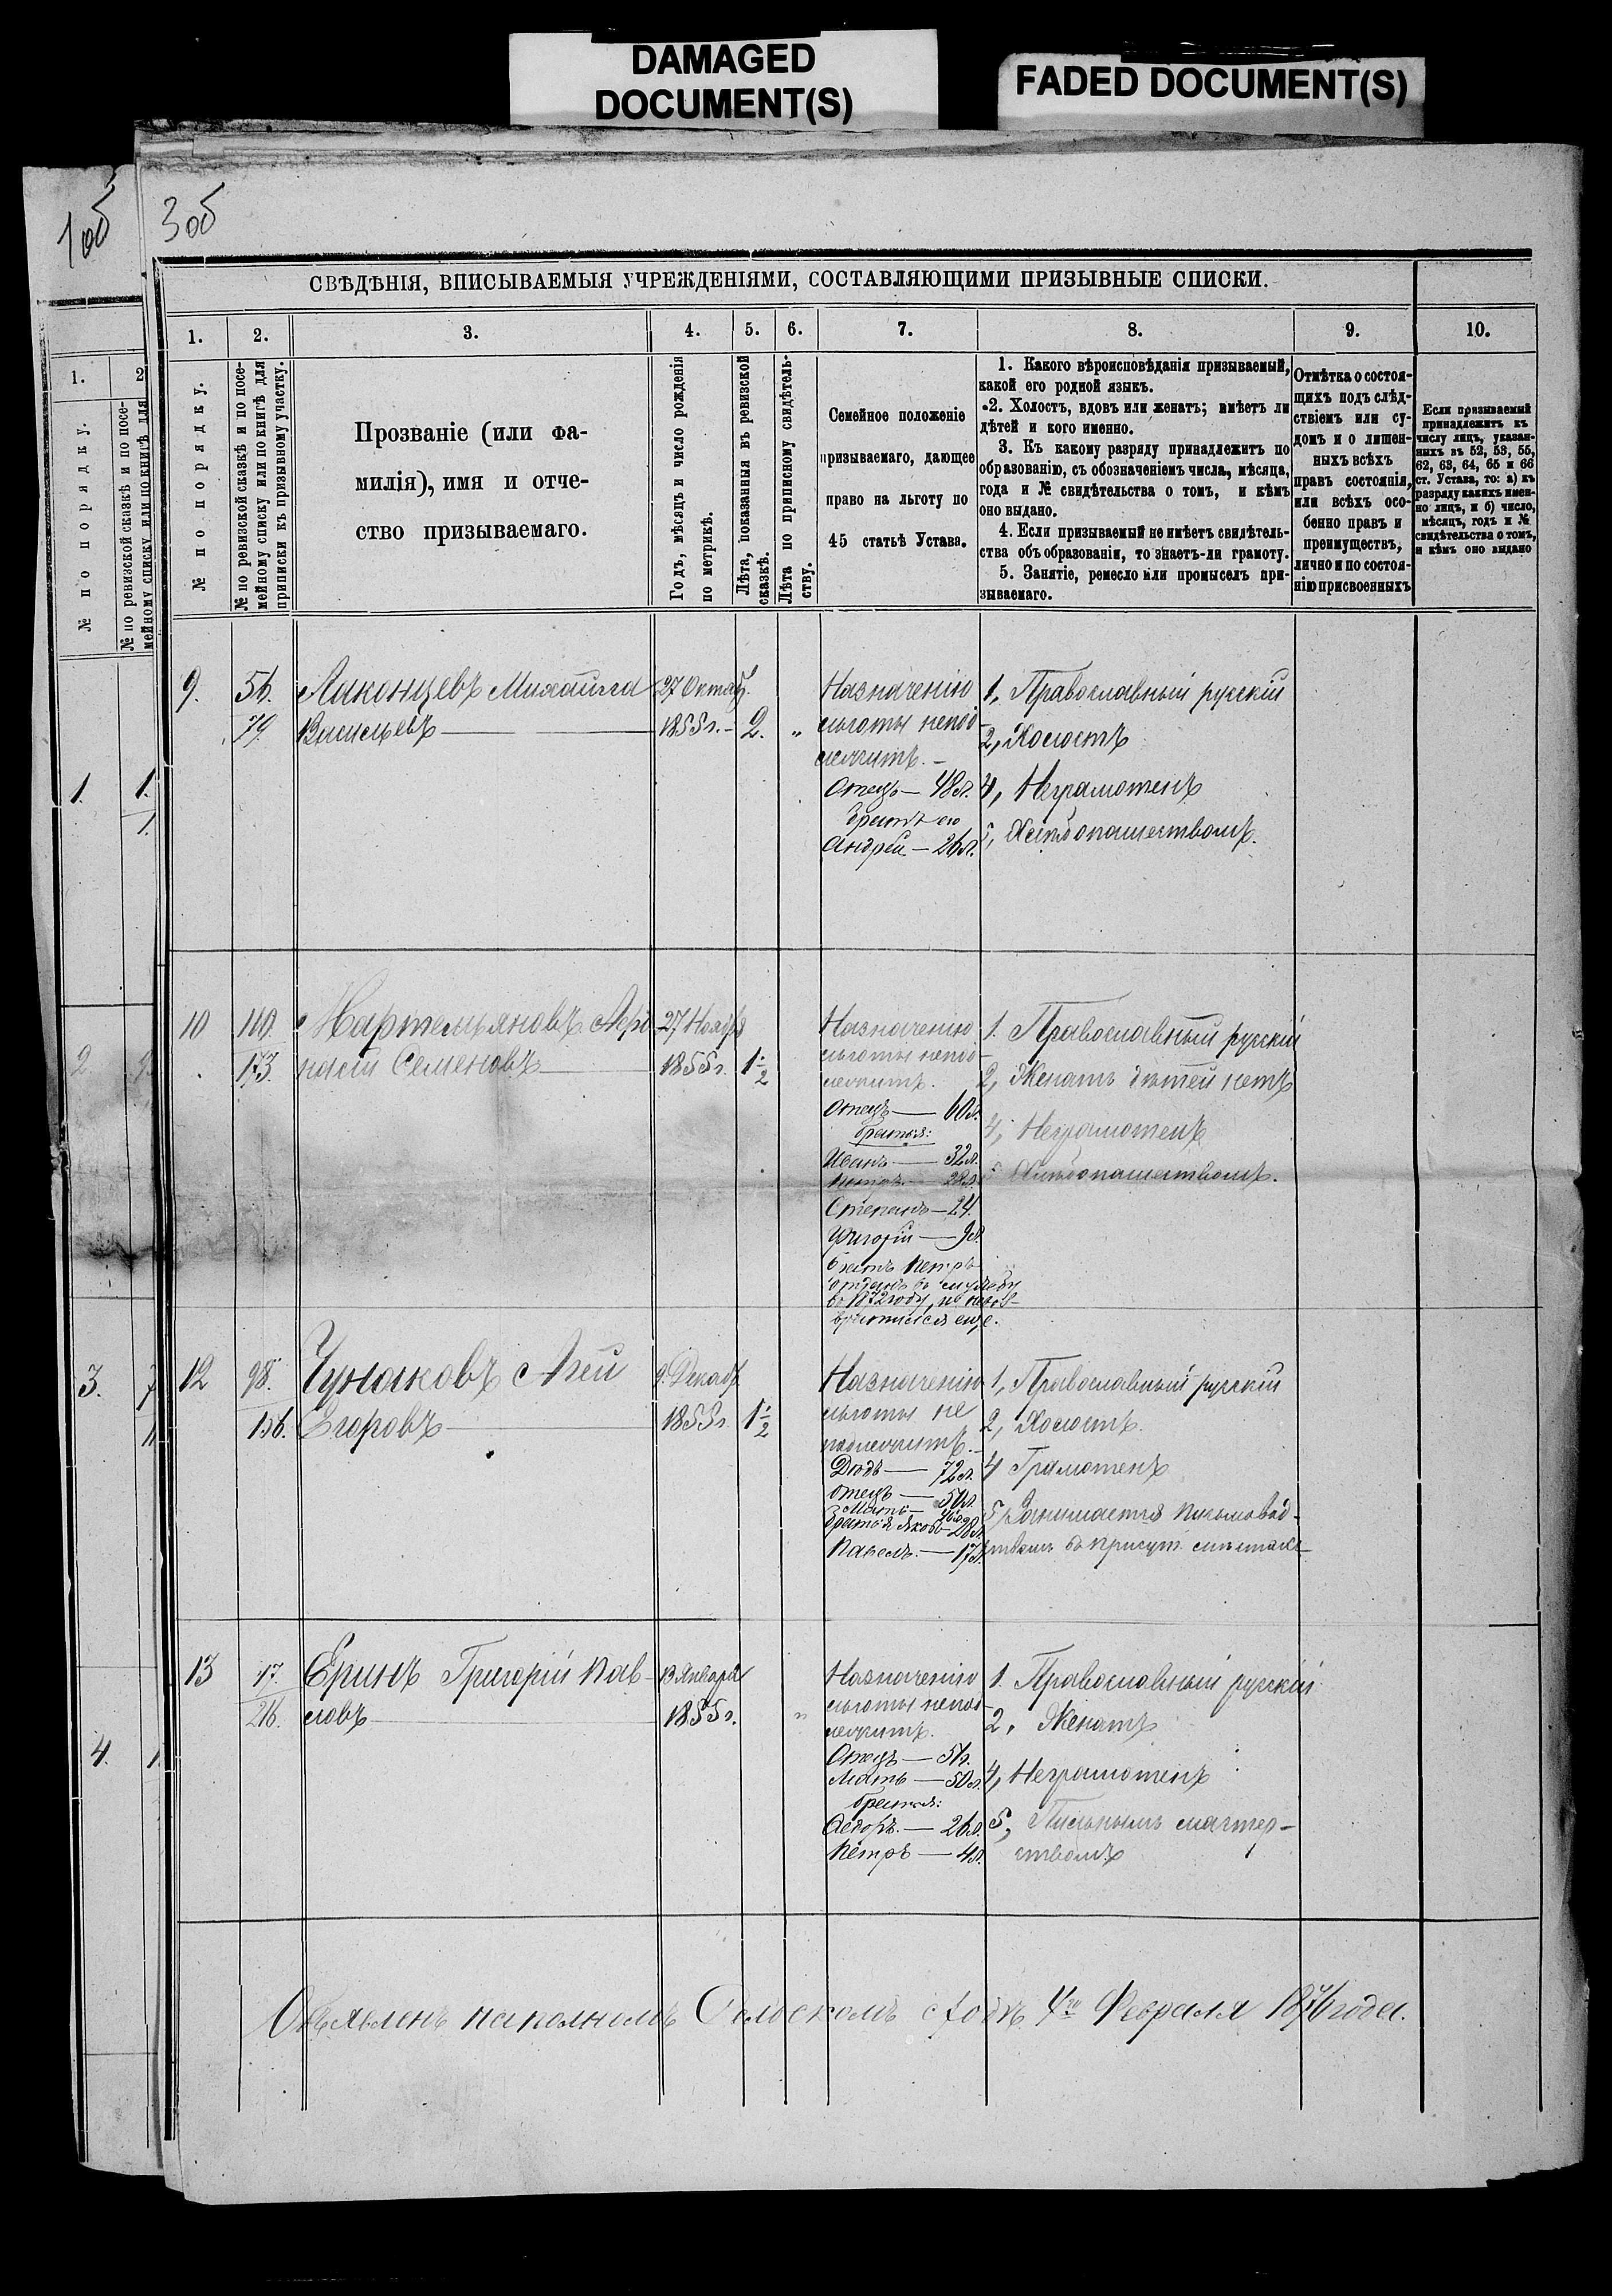 DAMAGED
DOCUMENT(S)
FADED DOCUMENT(S)
1об
3об
СВѢДѢНІЯ, ВПИСЫВАЕМЫЯ УЧРЕЖДЕНІЯМИ, СОСТАВЛЯЮЩИМИ ПРИЗЫВНЫЕ СПИСКИ.
1. 2. 3. 4. 5. 6. 7. 8. 9. 10.
№ по порядку.
№ по ревизской сказкѣ и по посе-
мейному списку или по книгѣ для
приписки къ призывному участку.
Прозваніе (или фа-
милія), имя и отче-
ство призываемаго.
Годъ, мѣсяцъ и число рожденія
по метрикѣ.
Лѣта, показанныя въ ревизской
сказкѣ.
Лѣта по приписному свидѣтель-
ству.
Семейное положеніе
призываемаго, дающее
право на льготу по
45 статьѣ Устава.
1. Какого вѣроисповѣданія призываемый,
какой его родной языкъ.
2. Холостъ, вдовъ или женатъ; имѣетъ ли
дѣтей и кого именно.
3. Къ какому разряду принадлежитъ по
образованію, съ обозначеніемъ числа, мѣсяца,
года и № свидѣтельства о томъ, и кѣмъ
оно выдано.
4. Если призываемый не имѣетъ свидѣтель-
ства объ образованіи, то знаетъ-ли грамоту.
5. Занятіе, ремесло или промыселъ при-
зываемаго.
Отмѣтка о состоя-
щихъ подъ слѣд-
ствіемъ или су-
домъ и о лишен-
ныхъ всѣхъ
правъ состоянія,
или всѣхъ осо-
бенно правъ и
преимуществъ,
лично и по состоя-
нію присвоенныхъ
Если призываемый
принадлежитъ къ
числу лицъ, указан-
ныхъ въ 52, 53, 55,
62, 63, 64, 65 и 66
ст. Устава, то: а) къ
разряду какихъ имен-
но лицъ, и б) число,
мѣсяцъ, годъ и №
свидѣтельства о томъ,
и кѣмъ оно выдано
1. 2
№ по порядку.
№ по ревизской сказкѣ и по посе-
мейному списку или по книгѣ для
1. 1.
2
3.
4.
9. 56. Лаконцевъ Михайла 27 Октяб.
79. Васильевъ 1855 г. 2. „
Назначенію
льготы непод-
лежитъ.
Отецъ — 48 л.
братъ его
Андрей — 26 л.
1, Православный русскій
2, Холостъ
4, Неграмотенъ
5, Хлѣбопашествомъ.
10 110. Мартемьяновъ Афо 27 Ноября
173. насій Семеновъ 1855 г. 1½
Назначенію
льготы непод-
лежитъ.
Отецъ — 60 л.
братья:
Иванъ — 32 л.
Петръ — 28 л.
Степанъ — 24.
Григорій — 9 л.
братъ Петръ
отданъ въ службу
въ 1872 году, не возв-
вратился еще.
1. Православный русскій
2, Женатъ дѣтей нетъ
4, Неграмотенъ
5 Хлѣбопашествомъ.
12 98. Чунаковъ Агей 9 Декабр
156. Егоровъ 1855 г. 1½
Назначенію
льготы не
подлежитъ.
Дѣдъ — 72 л.
отецъ — 50 л.
Мать —
братья Яковъ 28 л.
Павелъ — 17 л.
1, Православный русскій
2, Холостъ.
4 Грамотенъ
5, Занимается письмовод-
ствомъ въ присут.
13 17. Еринъ Григорій Пав- 13 Января
216. ловъ 1855 г. „
Назначенію
льготы непод-
лежитъ.
Отецъ — 51.
Мать — 50 л.
братья:
Федоръ — 26 л.
Петръ — 4 л.
1. Православный русскій
2, Женатъ
4, Неграмотенъ
5, Пильнымъ мастер-
ствомъ
Объявленъ на полномъ Сельскомъ сходѣ 4го Февраля 1876 года.